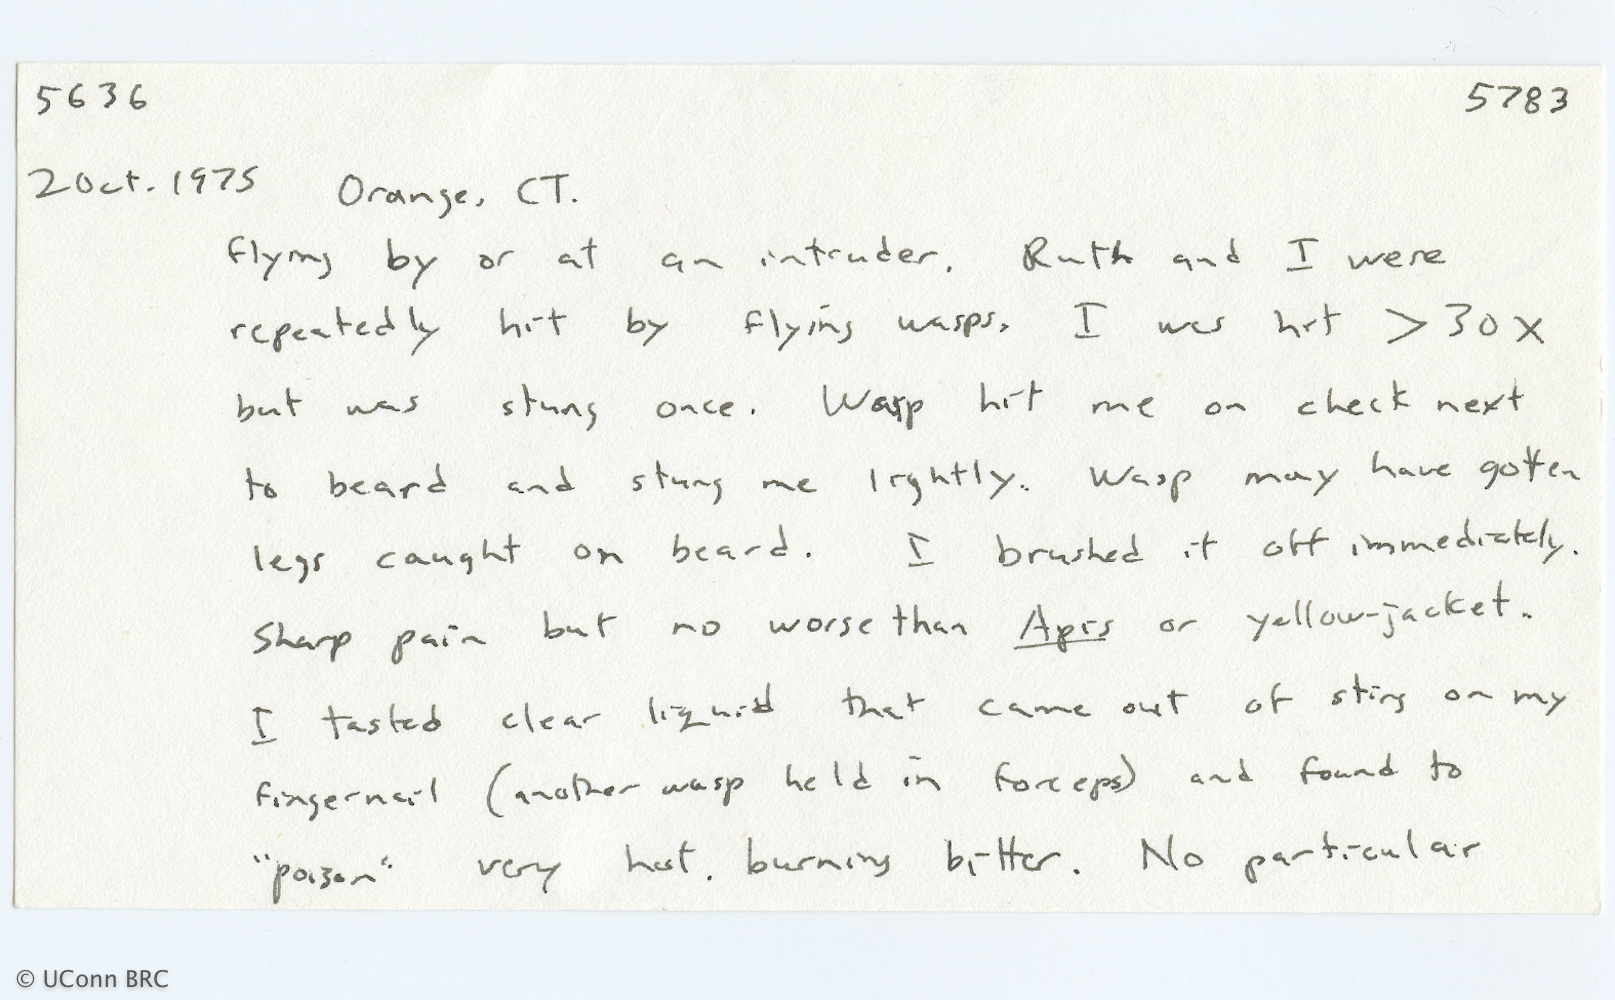 5636 5783
2 Oct. 1975 Orange, CT.
flying by or at an intruder. Ruth and I were
repeatedly hit by flying wasps. I was hit >30x
but was stung once. Wasp hit me on check next
to beard and stung me lightly. Wasp may have gotten
legs caught on beard. I brushed it off immediately.
Sharp pain but no worse than Apis or yellow-jacket.
I tasted clear liquid that came out of sting on my
fingernail (another wasp held in forceps) and found to
"poison" very hot, burning bitter. No particular
© UConn BRC